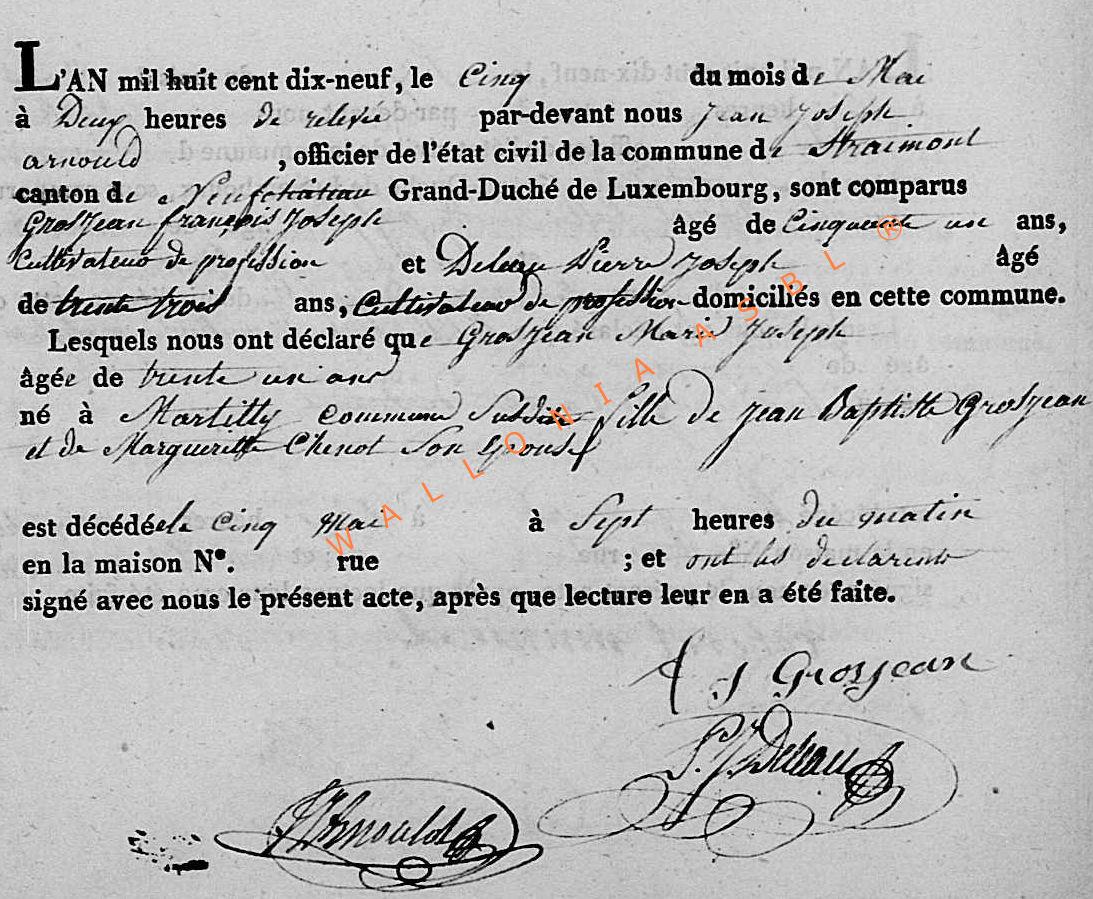 L'AN mil huit cent dix-neuf, le Cinq du mois de Mai
à Deux heures de relevée par-devant nous Jean Joseph
arnould, officier de l'état civil de la commune de Straimont
canton de Neufchâteau Grand-Duché de Luxembourg, sont comparus
Grosjean françois Joseph âgé de Cinquante un ans,
Cultivateur de profession et Pierre Joseph âgé
de trente trois ans, Cultivateur de profession domiciliés en cette commune.
Lesquels nous ont déclaré que Grosjean Marie Joseph
âgée de trente un ans
né à Martilly commune Susdite fille de jean Baptiste Grosjean
et de Marguerite Chenot Son Epouse
est décédée le Cinq Mai à Sept heures du matin
en la maison N°. rue ; et ont les déclarents
signé avec nous le présent acte, après que lecture leur en a été faite.
WALLONIA ASBL ®
f J Grosjean
P. J.
JJ Arnould